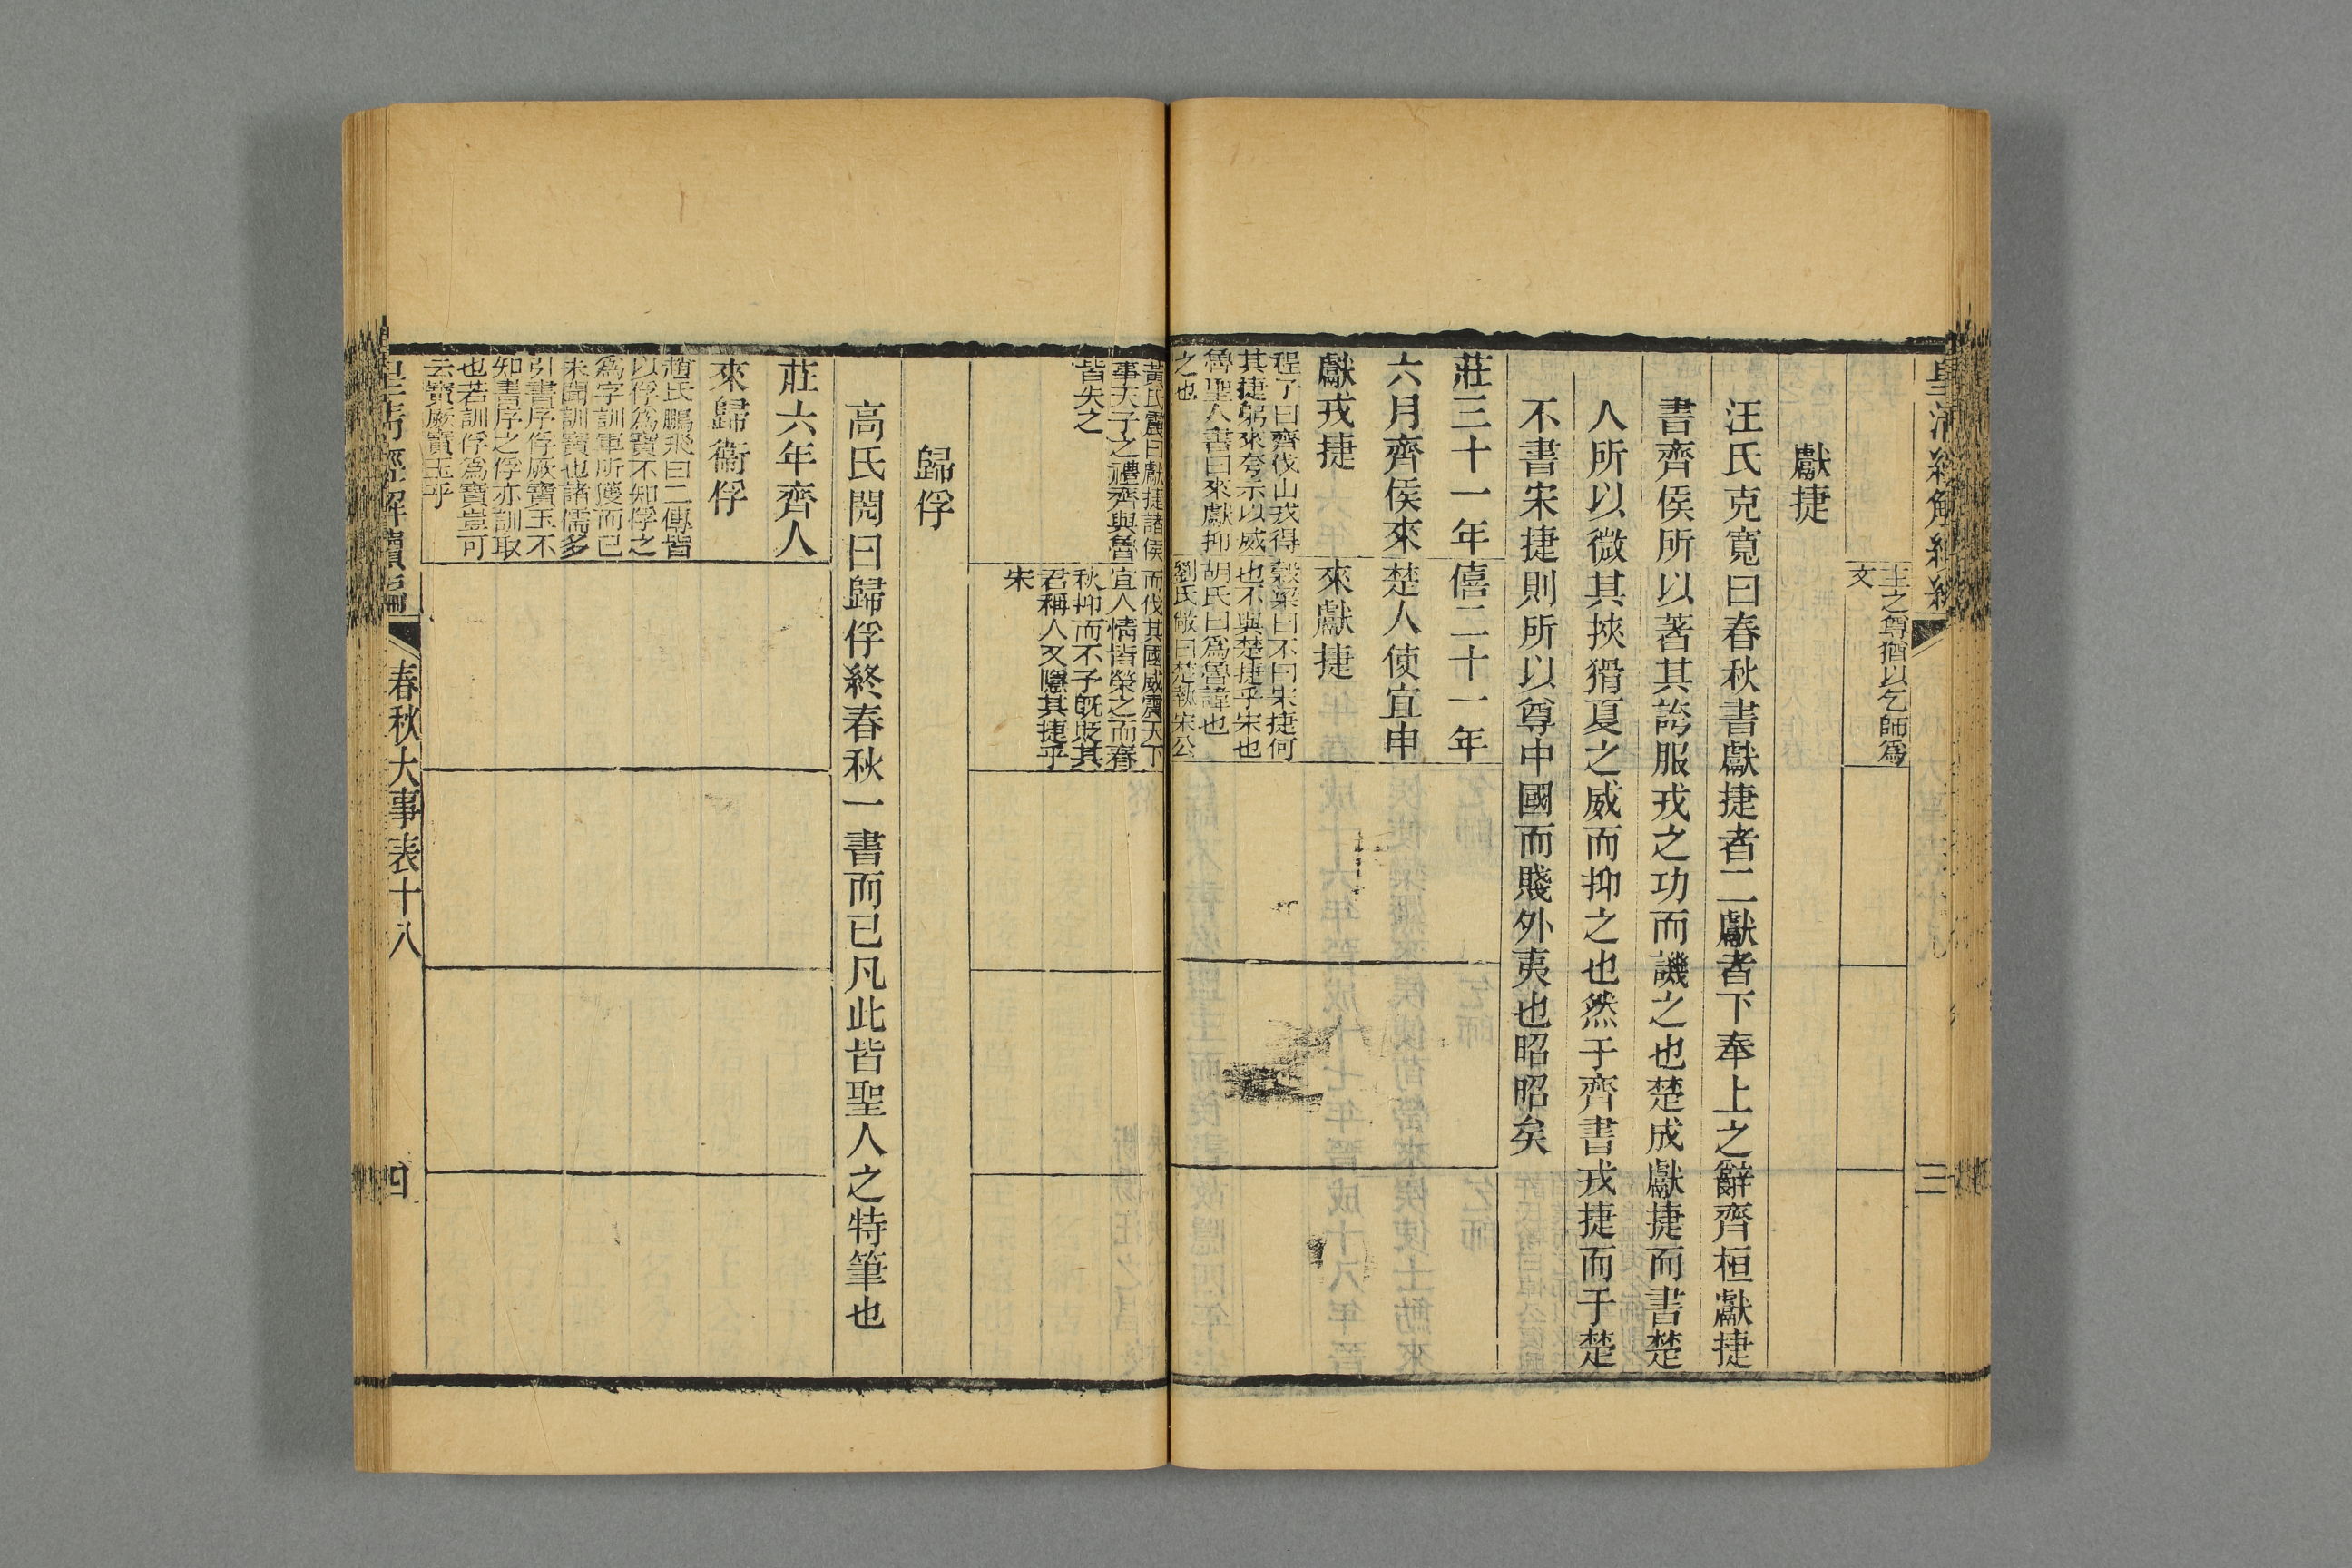 皇清經解續編
三
王之尊猶以乞師爲
文
獻捷
汪氏克寬曰春秋書獻捷者二獻者下奉上之辭齊桓獻捷
書齊侯所以著其誇服戎之功而譏之也楚成獻捷而書楚
人所以微其挾猾夏之威而抑之也然于齊書戎捷而于楚
不書宋捷則所以尊中國而賤外夷也昭昭矣
莊三十一年
六月齊侯來
獻戎捷
程子曰齊伐山戎得
其捷躬來夸示以威
魯聖人書曰來獻抑
之也
僖二十一年
楚人使宜申
來獻捷
穀梁曰不曰宋捷何
也不與楚捷乎宋也
胡氏曰爲魯諱也
劉氏敞曰楚執宋公
黃氏震曰獻捷諸侯
事天子之禮齊與魯
皆失之
而伐其國威震天下
宜人情皆榮之而春
秋抑而不予旣貶其
君稱人又隱其捷乎
宋
歸俘
高氏閌曰歸俘終春秋一書而已凡此皆聖人之特筆也
莊六年齊人
來歸衞俘
趙氏鵬飛曰二傳皆
以俘爲寶不知俘之
爲字訓軍所獲而已
未聞訓寶也諸儒多
引書序俘厥寶玉不
知書序之俘亦訓取
也若訓俘爲寶豈可
云寶厥寶玉乎
皇清經解續編
春秋大事表十八
四